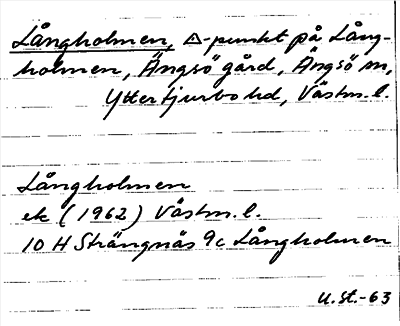 Långholmen, △-punkt på Lång-
holmen, Ängsö gård, Ängsö sn,
Yttertjurbo hd, Västm. l.
Långholmen
ek (1962) Västm. l.
10 H Strängnäs 9c Långholmen
U.St.-63